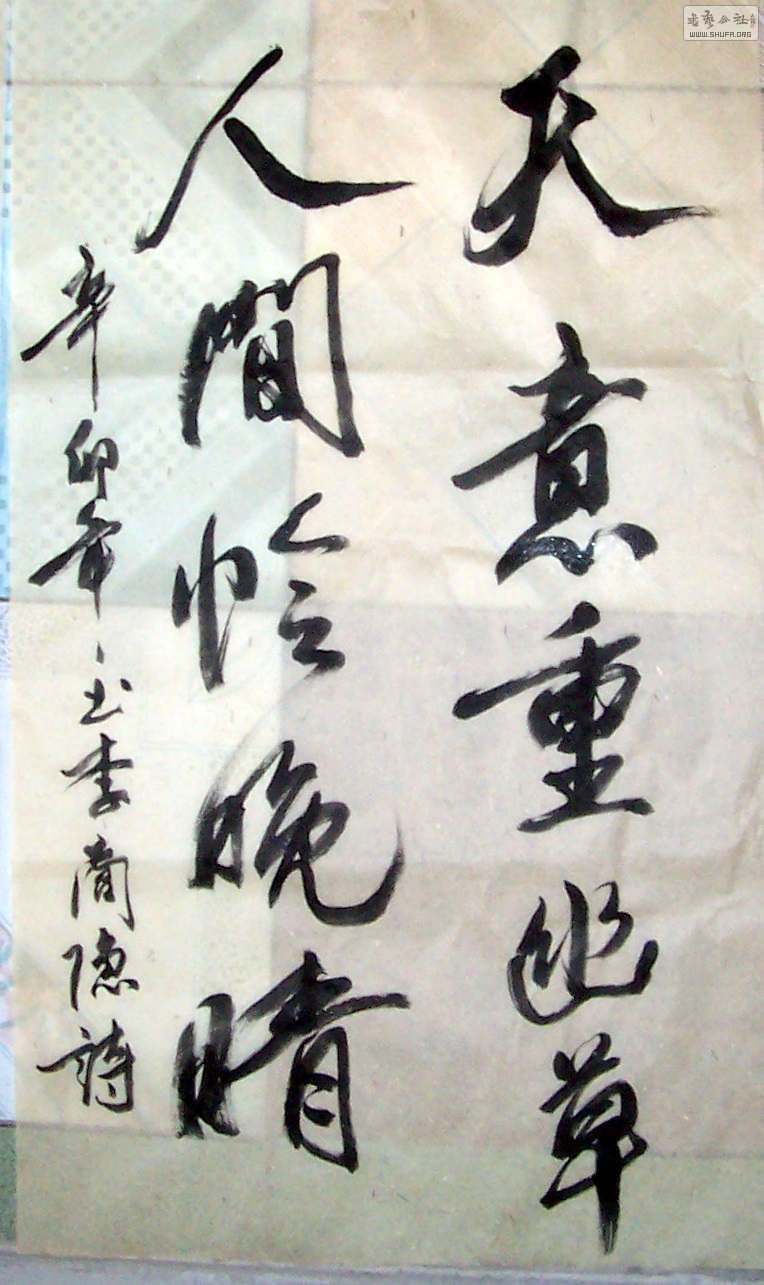 天意重幽草
人間怜晚晴
辛卯年书李商隐詩
书艺公社
WWW.SHUFA.ORG